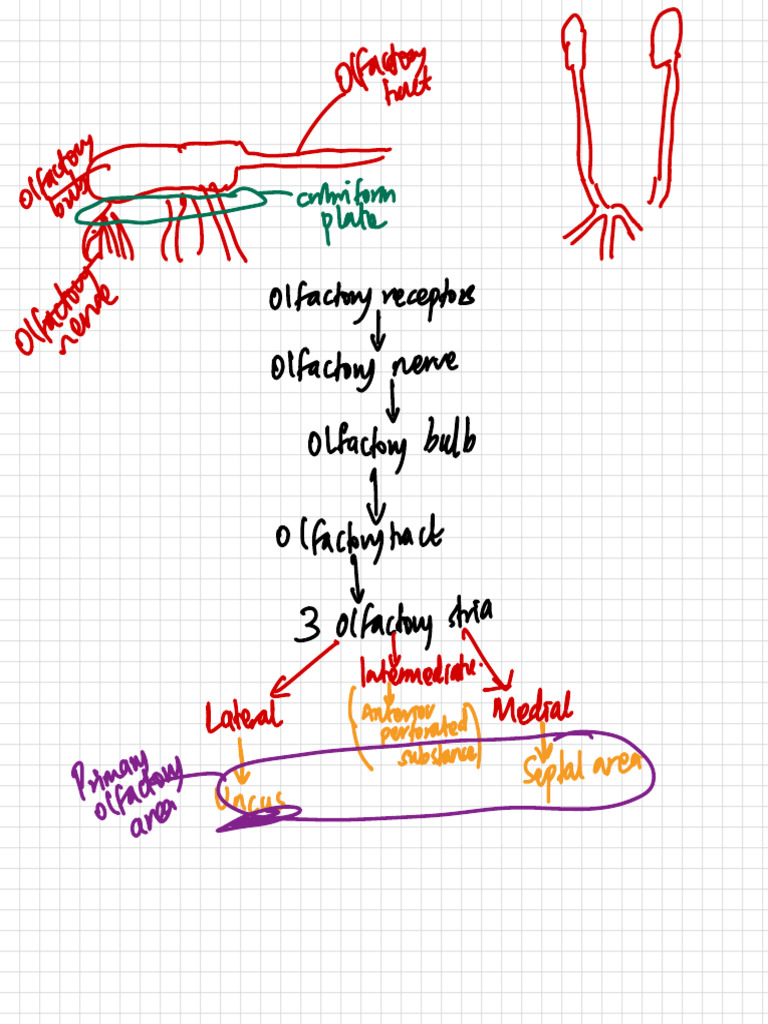 Olfactory
tract
Olfactory
bulb
cribriform
plate
Olfactory
nerve
Olfactory receptors
Olfactory nerve
Olfactory bulb
Olfactory tract
3 Olfactory stria
Intermediate.
Lateral
Medial
(Anterior
perforated
substance)
Septal area
Primary
olfactory
area
Uncus